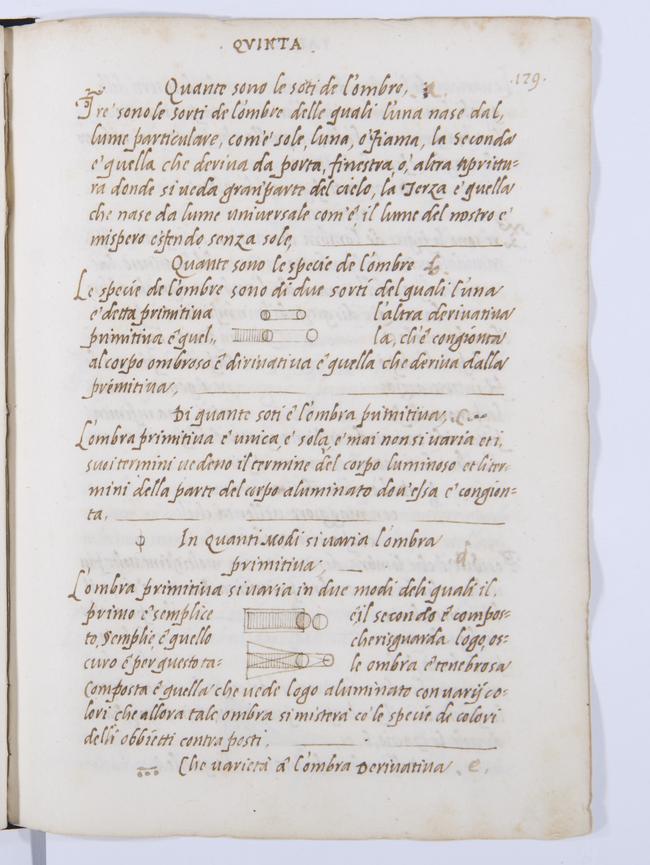 QVINTA
.129.
Quante sono le soti de l'ombre, a.
Tre sono le sorti de l'ombre delle quali l'una nase dal,
lume particulare, com'e sole, luna, o fiama, la seconda
e quella che deriva da porta, finestra, o, altra aprittu=
ra donde si veda gran parte del cielo, la Terza e quella
che nase da lume universale com'è il lume del nostro e
mispero essendo senza sole,
Quante sono le specie de l'ombre b.
Le specie de l'ombre sono di due sorti del quali l'una
e detta primitiva l'altra derivativa
primitiva è quel,, la, ch'è congionta
al corpo ombroso è dirivativa è quella che deriva dalla
premitiva,
Di quante soti è l'ombra primitiva, c.
L'ombra primitiva e unica, e sola, e mai non si varia et i,
suoi termini vedeno il termine del corpo luminoso et li ter=
mini della parte del corpo aluminato dov'essa e congion=
ta.
In Quanti Modi si varia l'ombra
primitiva, d.
L'ombra primitiva si varia in due modi deli quali il,
primo è semplice è il secondo è compos=
to, Semplic, è quello che risguarda logo, os=
curo è per questo ta= le ombra è tenebrosa
Composta è quella che vede logo aluminato con varij co=
lori che allora tale ombra si misterà cō le specie de colori
delli obbietti contra posti.
Che varietà à l'ombra Derivativa e.